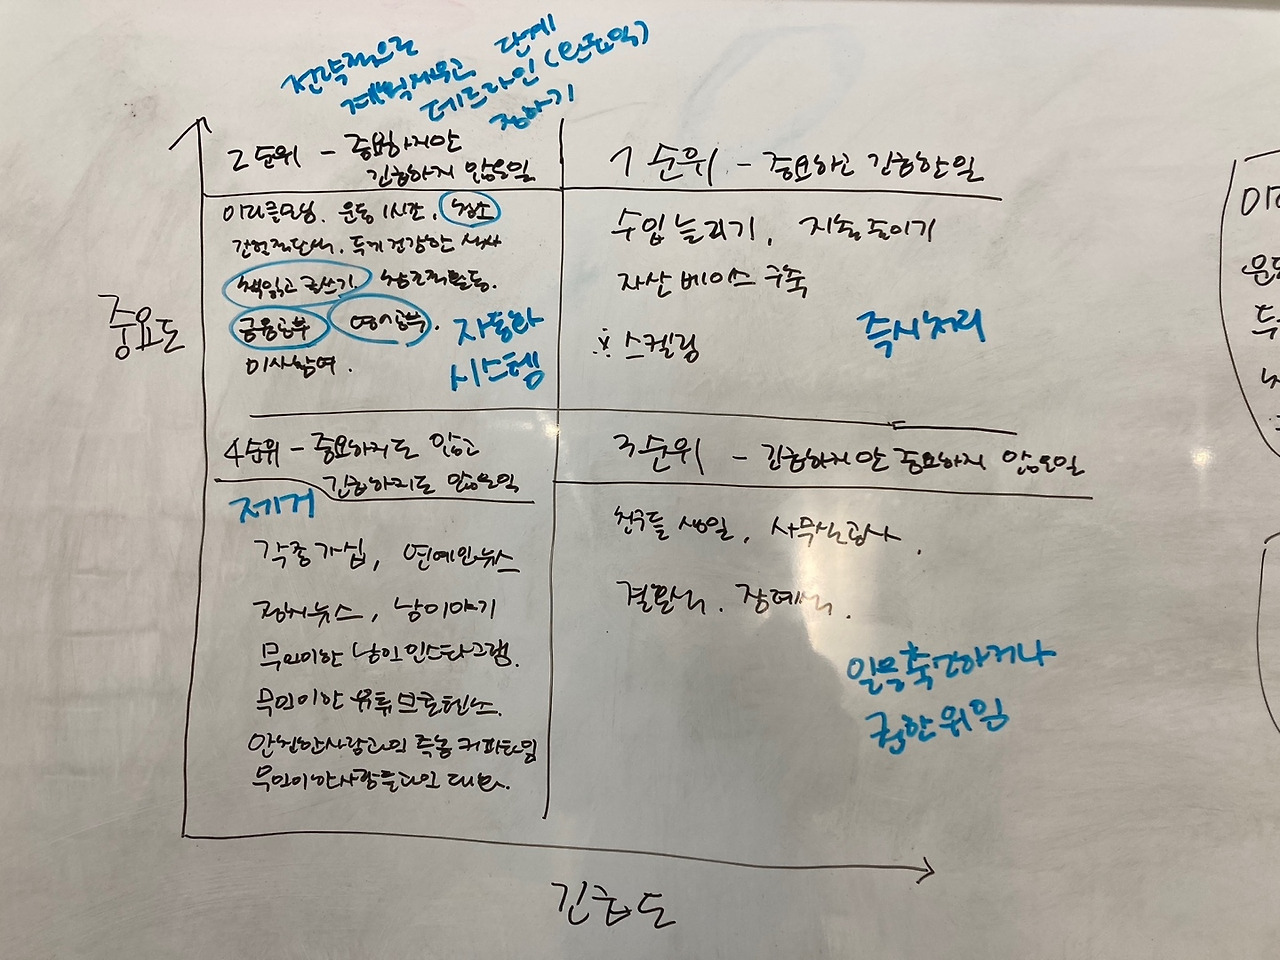 전략적으로
계획세우고 단계
데드라인(완료일)
정하기
2순위 - 중요하지만
긴급하지 않은일
미라클모닝. 운동 1시간. 청소
간헐적단식. 두끼 건강한 식사
책읽고 글쓰기.
금융공부 영어공부.
자동화
시스템
1순위 - 중요하고 긴급한일
수입 늘리기, 지출 줄이기
자산 베이스 구축
※ 스켈링
즉시처리
중요도
4순위 - 중요하지도 않고
긴급하지도 않은일
제거
각종가십, 연예인뉴스
정치뉴스, 남이야기
무의미한 남의 인스타그램.
무의미한 유튜브
안친한사람과의 즉흥 커피타임
무의미한사람들과의 대화.
3순위 - 긴급하지만 중요하지 않은일
친구들 생일, 사무실공사.
결혼식. 장례식.
일을축소하거나
권한위임
긴급도